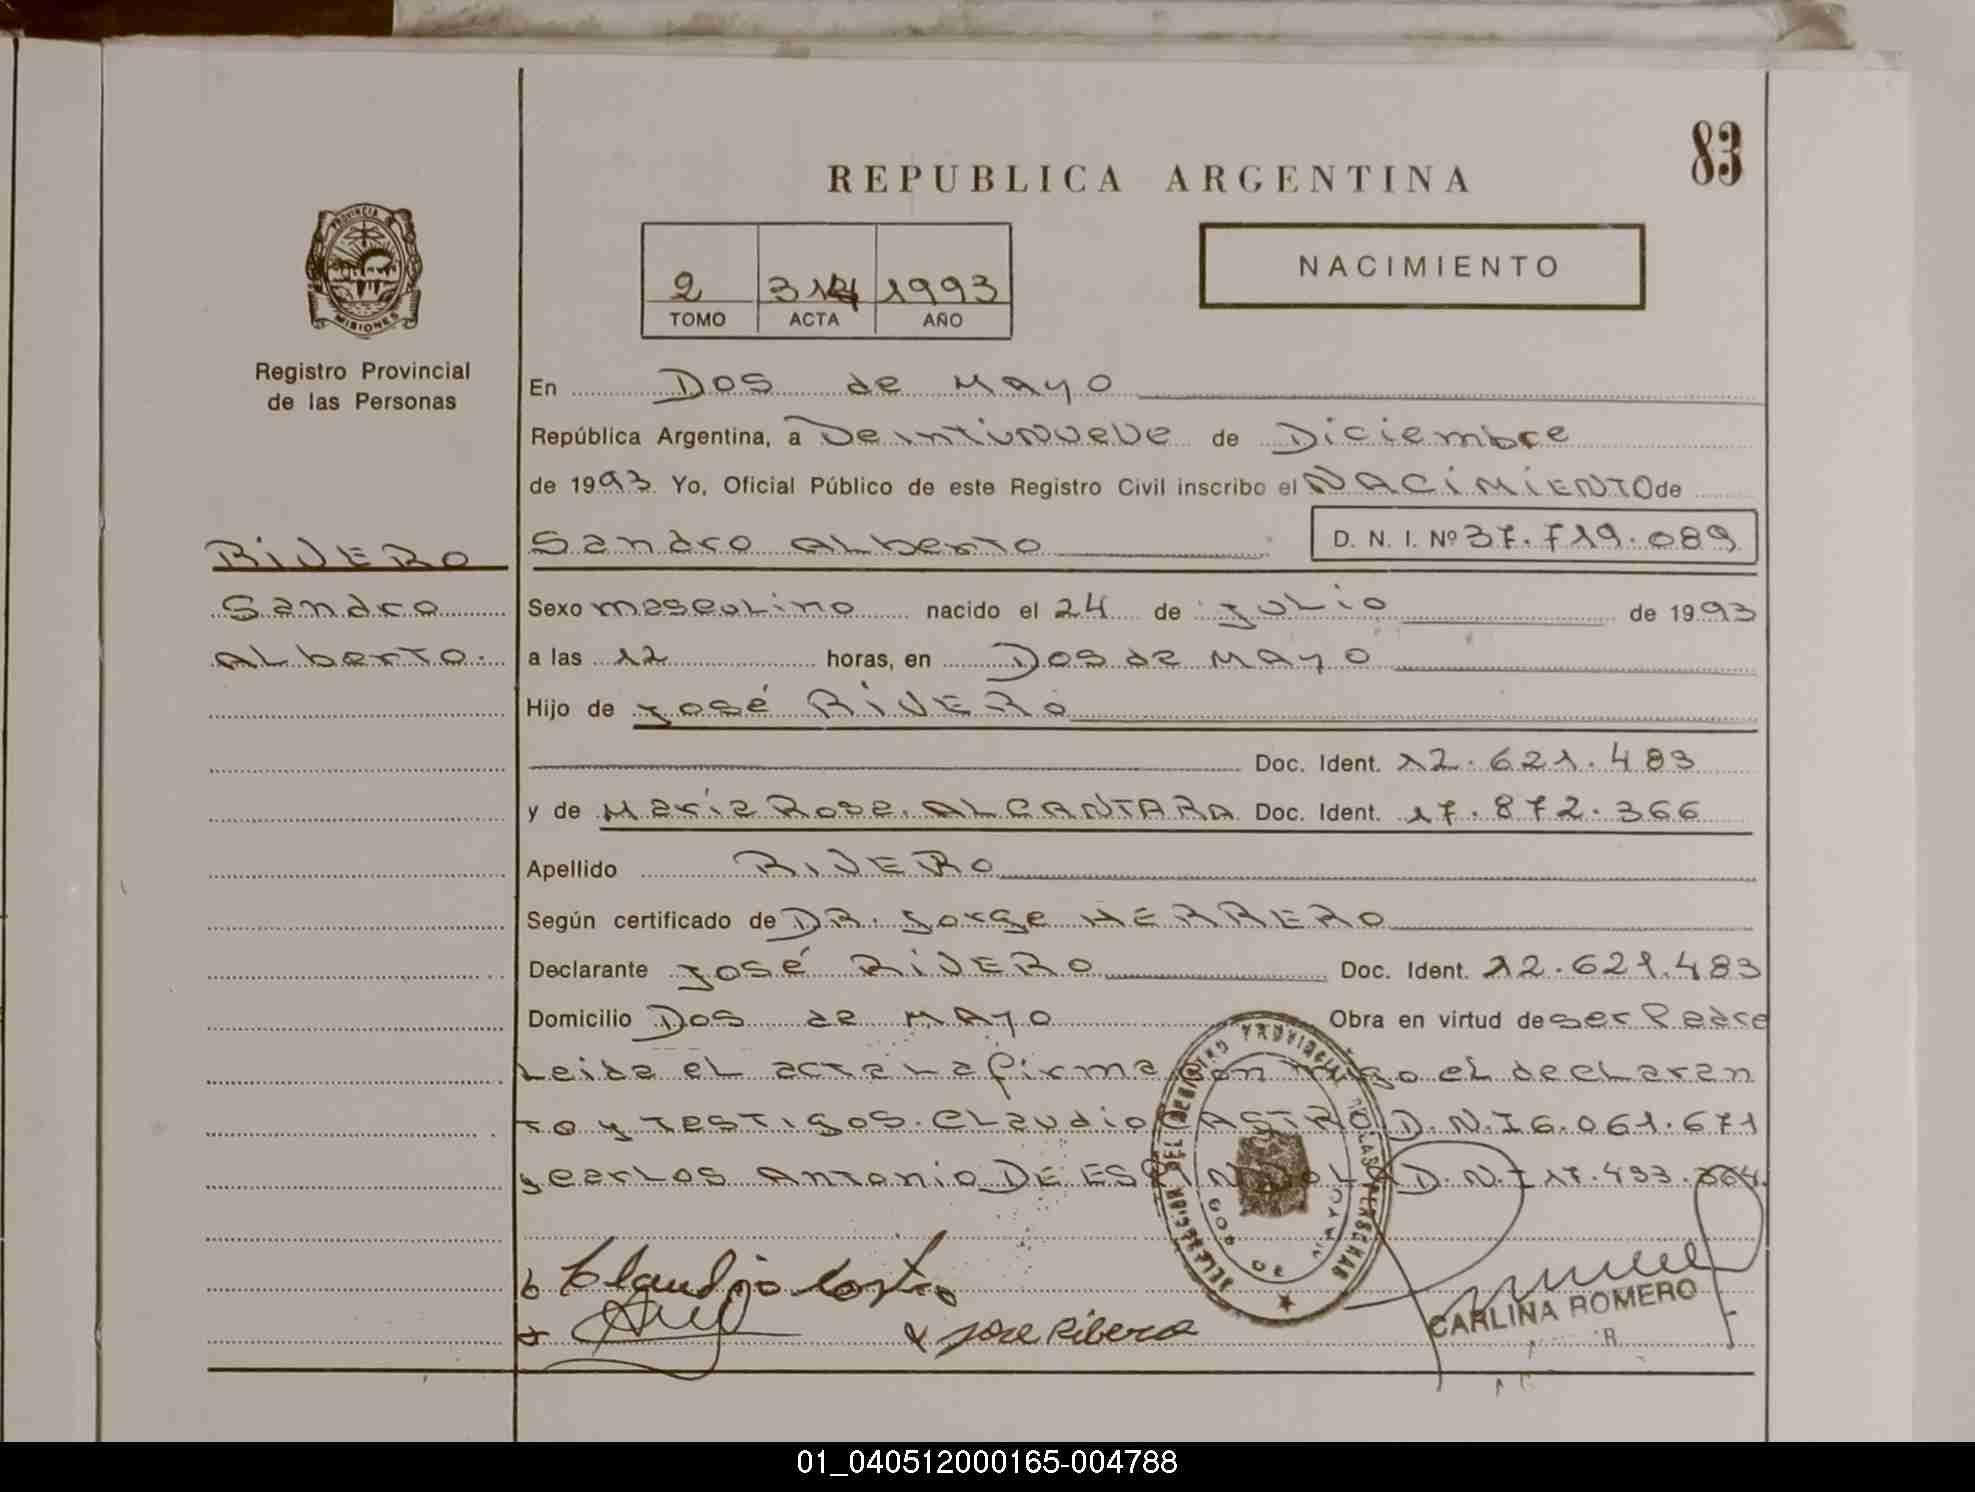 83
REPUBLICA ARGENTINA
PROVINCIA DE
MISIONES
NACIMIENTO
2 314 1993
TOMO ACTA AÑO
Registro Provincial
de las Personas
En Dos de Mayo
República Argentina, a Veintinueve de Diciembre
de 1993 Yo, Oficial Público de este Registro Civil inscribo el NACIMIENTO de
RIVERO Sandro Alberto D. N. I. Nº 37.719.089
Sandro Sexo masculino nacido el 24 de julio de 1993
Alberto. a las 12 horas, en Dos de Mayo
Hijo de José RIVERO
Doc. Ident. 12.621.483
y de María Rosa ALCANTARA Doc. Ident. 17.872.366
Apellido RIVERO
Según certificado de DR. Jorge HERRERO
Declarante José RIVERO Doc. Ident. 12.621.483
Domicilio Dos de Mayo Obra en virtud de ser Padre
Leida el acta la firma con migo el declaran
to y testigos. Claudio CASTRO D.N.I 6.061.671
y Carlos Antonio DE ESPINDOLA D.N.I 17.493.
Claudio Castro
Jose Ribero
CARLINA ROMERO
01_040512000165-004788